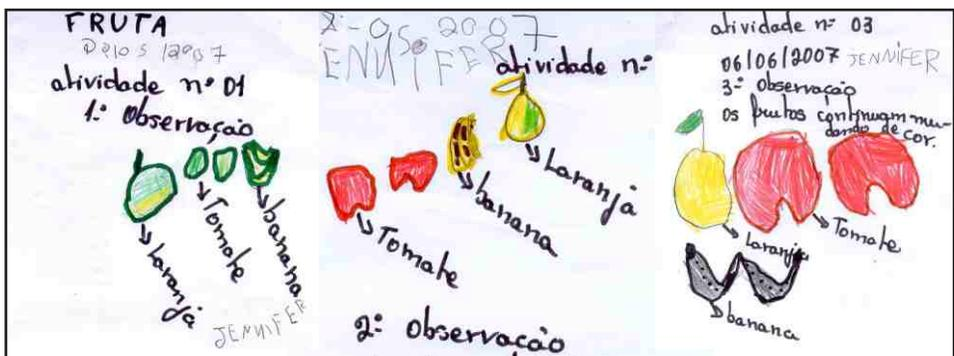 FRUTA
atividade nº 01
1ª Observação
Laranja
Tomate
banana
JENNIFER
2007
ENNIFER
atividade nº
Laranja
banana
Tomate
2ª Observação
atividade nº 03
06/06/2007 JENNIFER
3ª Observação
Os frutos continuam mu-
dando de cor.
Laranja
Tomate
banana